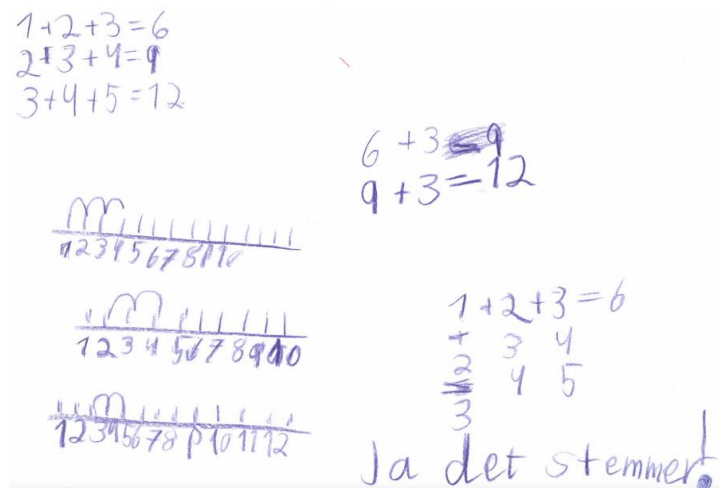 1+2+3=6
2+3+4=9
3+4+5=12
6+3=9
9+3=12
1 2 3 4 5 6 7 8 9 10
1 2 3 4 5 6 7 8 9 10
1 2 3 4 5 6 7 8 9 10 11 12
1+2+3=6
+ 3 4
2 4 5
=
3
Ja det stemmer!